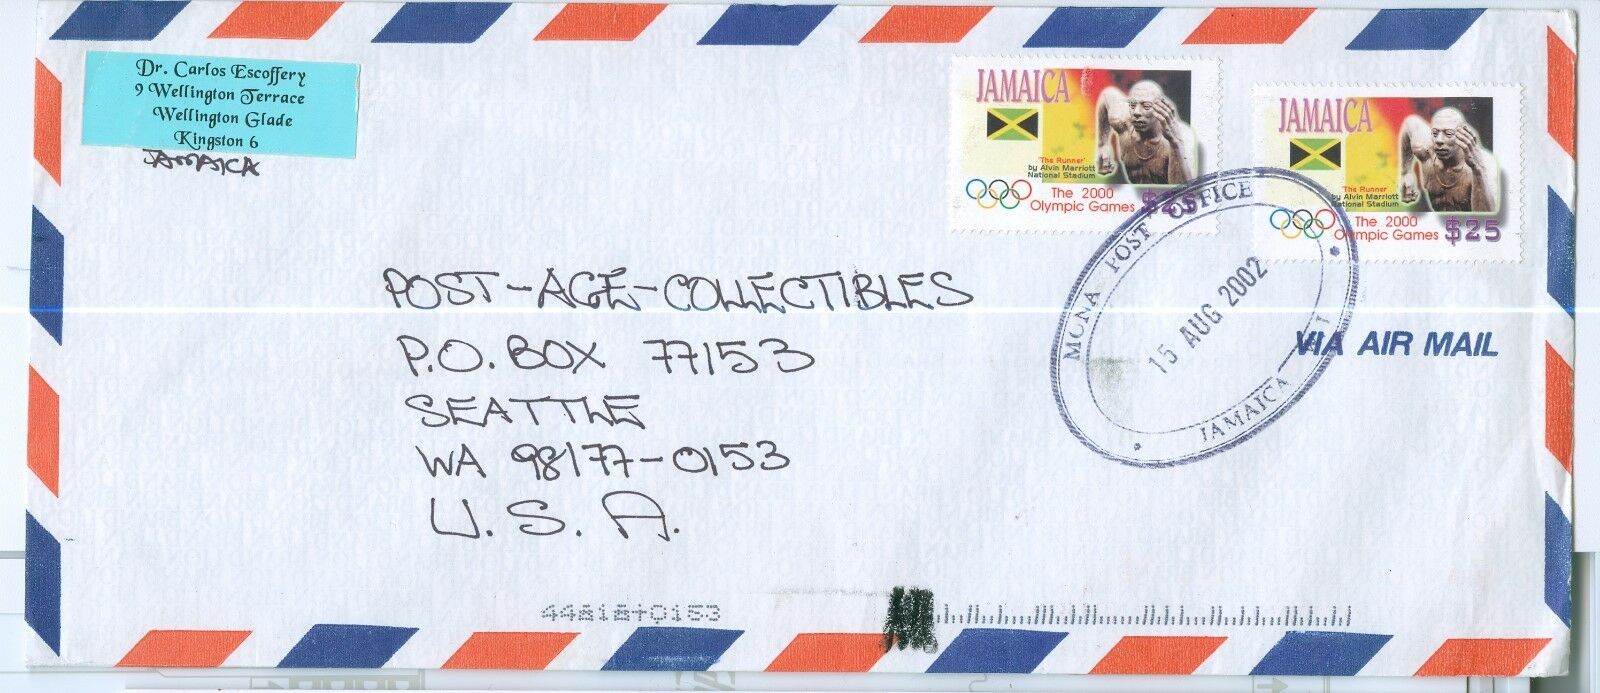 Dr. Carlos Escoffery
9 Wellington Terrace
Wellington Glade
Kingston 6
JAMAICA
JAMAICA
'The Runner'
by Alvin Marriott
National Stadium
The 2000
Olympic Games $25
JAMAICA
'The Runner'
by Alvin Marriott
National Stadium
The 2000
Olympic Games $25
MONA POST OFFICE
15 AUG 2002
JAMAICA
VIA AIR MAIL
POST-AGE-COLLECTIBLES
P.O. BOX 77153
SEATTLE
WA 98177-0153
U.S.A.
44818+0153